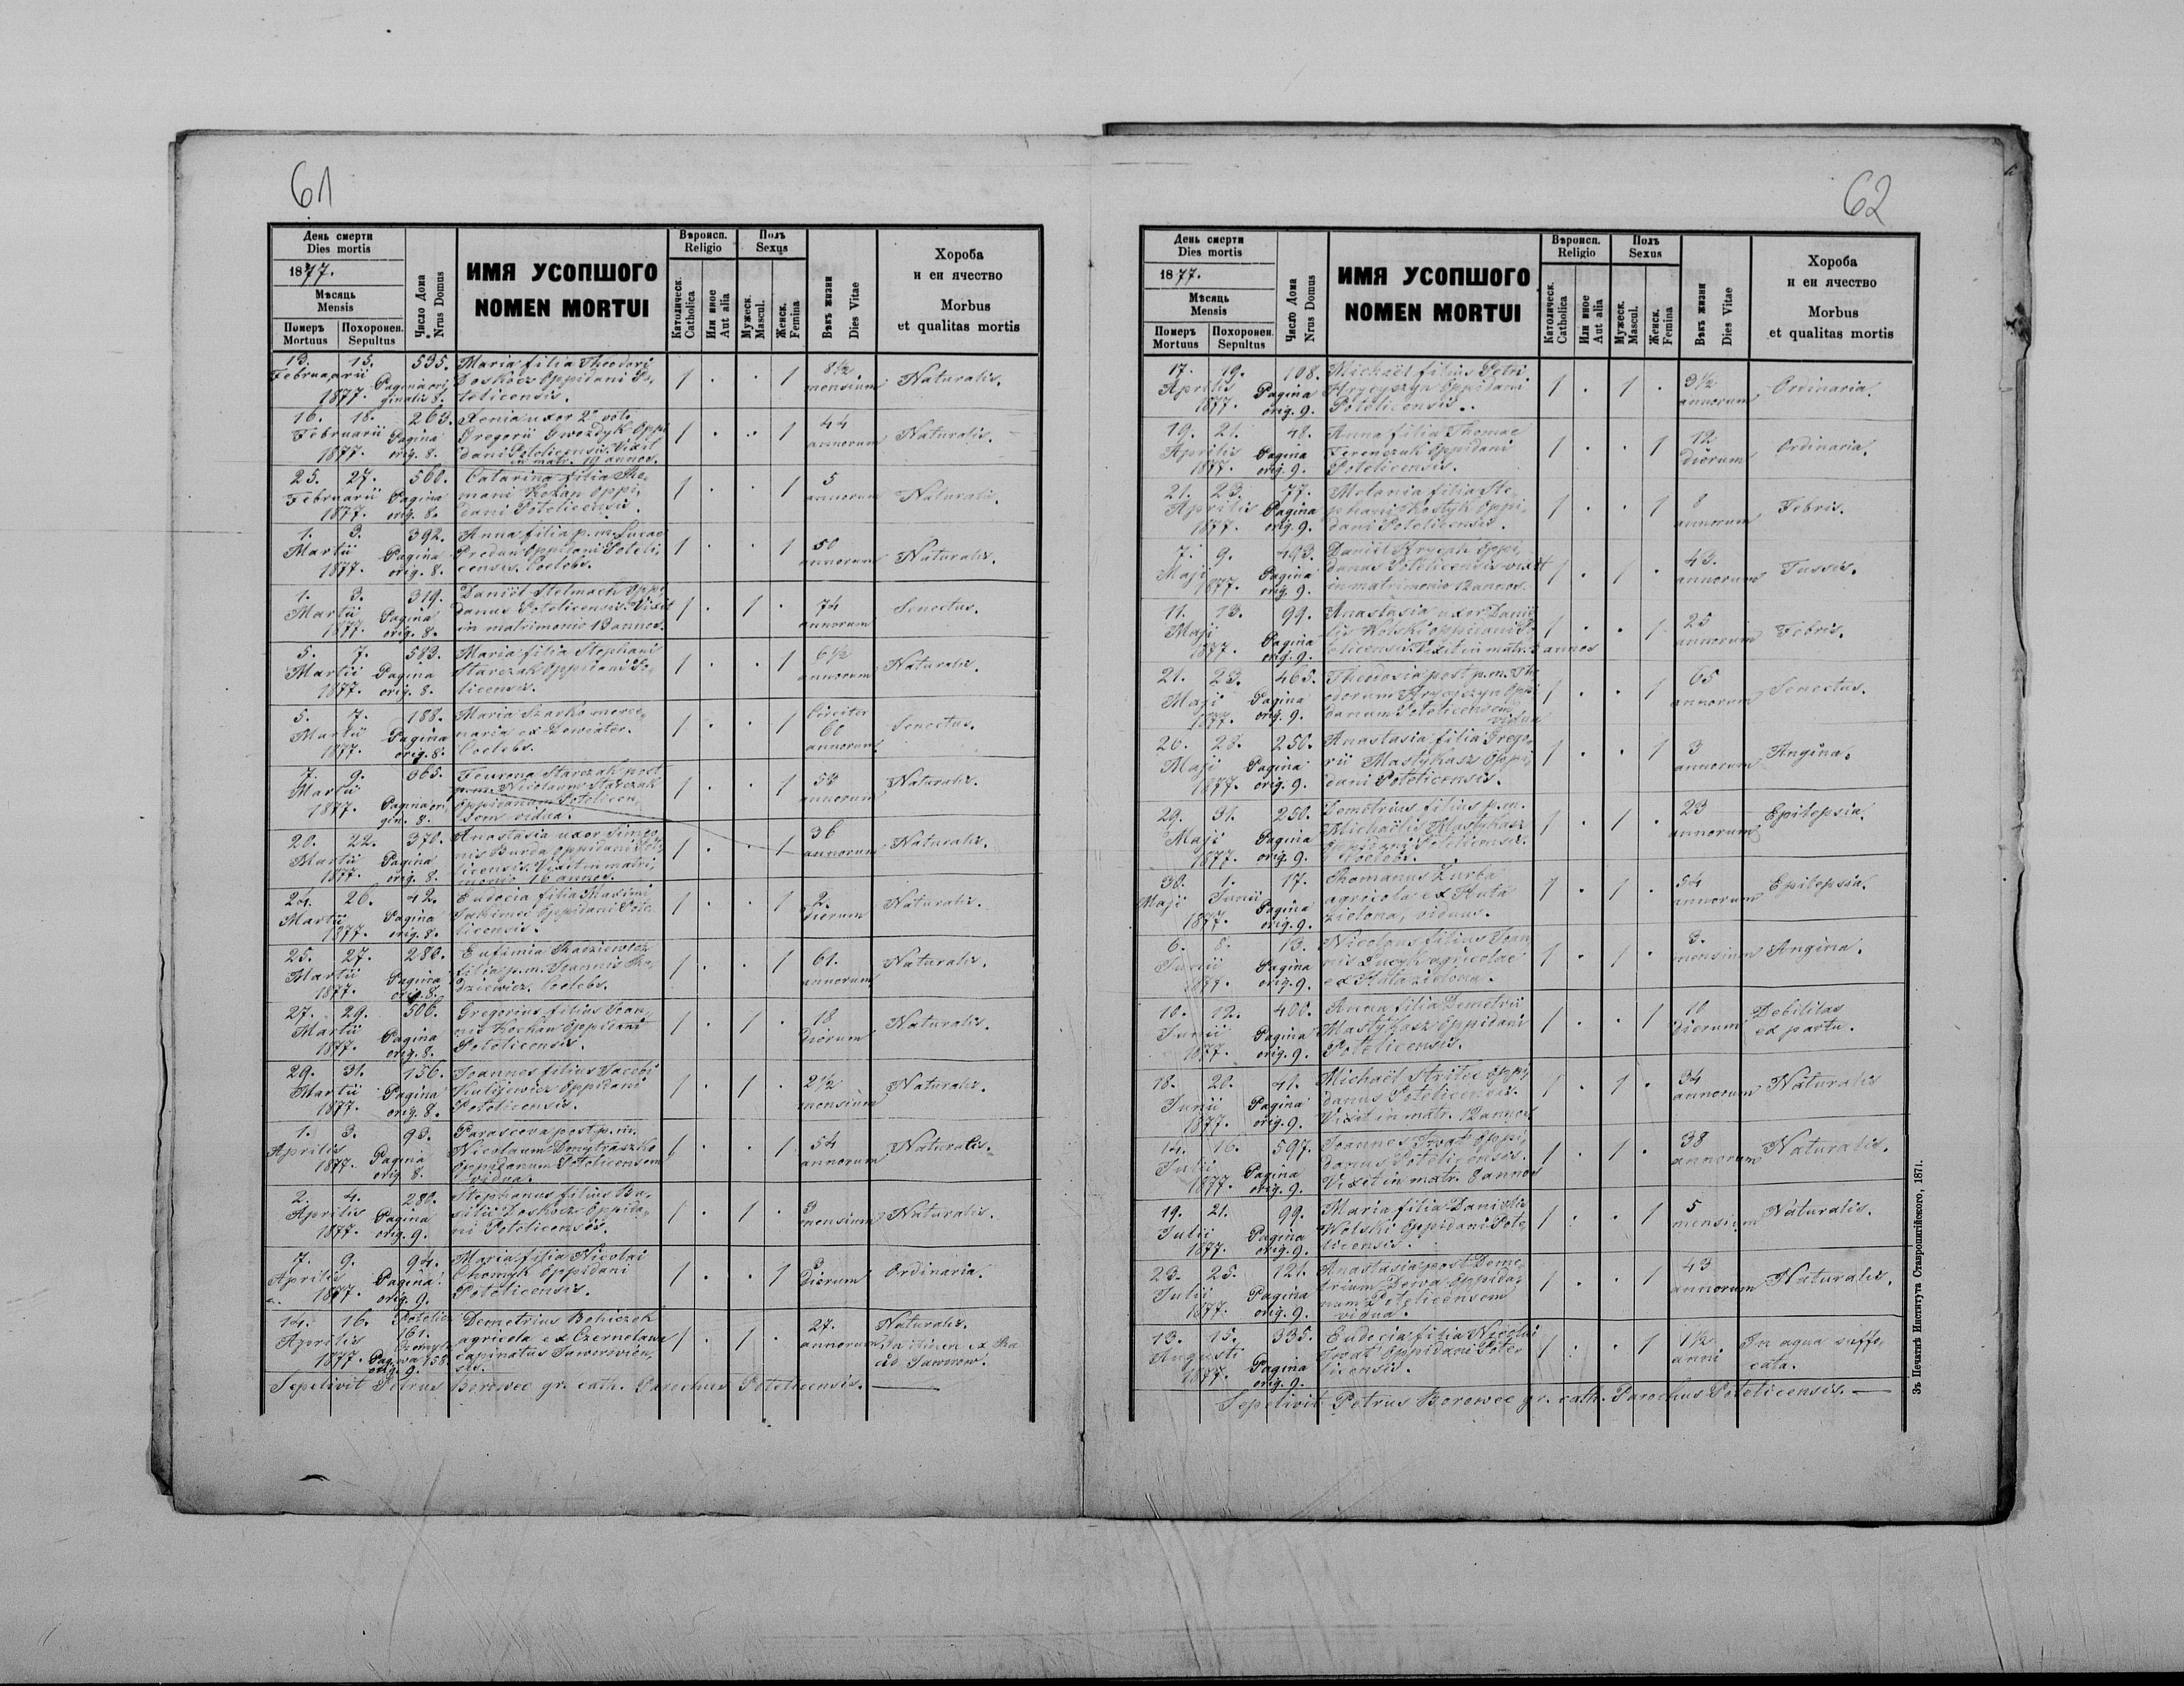 61
День смерти
Dies mortis
1877.
Мѣсяць
Mensis
Померъ
Mortuus
Похоронен.
Sepultus
Число Дома
Nrus Domus
ИМЯ УСОПШОГО
NOMEN MORTUI
Вѣроисп.
Religio
Католическ.
Catholica
Или иное
Aut alia
Полъ
Sexus
Мужеск.
Mascul.
Женск.
Femina
Вѣкъ жизни
Dies Vitae
Хороба
и еи ячество
Morbus
et qualitas mortis
13. 15. 535. Maria filia Theodori 8 1/2
Februarii Pagina ori, Doskocz Oppidani Po, 1 . . 1 mensium Naturalis.
1877. ginalis 8. telicensis.
16. 18. 263. Xenia uxor 2º voto 44
Februarii Pagina Gregorii Gwozdyk Oppi 1 . . 1 annorum Naturalis.
1877. orig. 8. dani Potelicensis. Vixit
in matr. 19 annos.
25. 27. 560. Catarina filia 5
Februarii Pagina Oppi, 1 . . 1 annorum Naturali.
1877. orig. 8. dani Potelicensis.
1. 3. 392. Anna filia p. m. Lucae 50
Martii Pagina Predun Oppidani Poteli, 1 . . 1 annorum Naturalis.
1877. orig. 8. censis. Coelebs.
1. 3. 319. Daniël Stelmach Oppi 74
Martii Pagina danus Potelicensis. Vixit 1 . 1 . annorum Senectus.
1877. orig. 8. in matrimonio 13 annos.
5. 7. 583. Maria filia Stephani 6 1/2
Martii Pagina Starczak Oppidani Po, 1 . . 1 annorum Naturalis.
1877. orig. 8. licensis.
5. 7. 188. Maria Szarko merce, Circiter
Martii Pagina naria ex Dewiater. 1 . . 1 60 Senectus.
1877. orig. 8. Coelebs. annorum
7. 9. 365. Feurona Starczak post
Martii p. m. Nicolaum Starczak 1 . . 1 annorum Naturalis.
1877. Pagina ori, Oppidanum Potelicen,
gin. 8. sem vidua.
20. 22. 370. Anastasia uxor Simeo 36
Martii Pagina nis Burda Oppidani Pote, 1 . . 1 annorum Naturalis.
1877. orig. 8. licensis. Vixit in matri,
monio 16 annos.
24. 26. 42. Eudocia filia Maximi 2.
Martii Pagina Jakimei Oppidani Pote 1 . . 1 dierum Naturalis.
1877. orig. 8. licensis.
25. 27. 280. Eufimia Radziewicz 61.
Martii Pagina filia p. m. Joannis Ra, 1 . . 1 annorum Naturalis.
1877. orig. 8. dziewicz. Coelebs.
27. 29. 506. Gregorius filius Joan, 18
Martii Pagina nis Kochan Oppidani 1 . 1 . Dierum Naturalis.
1877. orig. 8. Potelicensis.
29. 31. 156. Joannes filius Jacobi 2 1/2
Martii Pagina Kulijewicz Oppidani 1 . 1 . mensium Naturalis.
1877. orig. 8. Potelicensis.
1. 3. 93. Parasceva post p. m. 54
Aprilis Nicolaum Dmytraszko 1 . . 1 annorum Naturalis.
1877. Pagina Oppidanum Potelicensem
orig 8. vidua.
2. 4. 280. Stephanus filius Ba, 3
Aprilis Pagina silii Doskocz Oppida, 1 . 1 . mensium Naturalis.
1877. orig. 9. ni Potelicensis.
7. 9. 94. Maria filia Nicolai 3
Aprilis Pagina Chomyk Oppidani 1 . . 1 Dierum Ordinaria.
1877. orig. 9. Potelicensis.
14. 16. Potelicz Demetrius Bohiczek 27. Naturalis.
Aprilis 161. agricola ex Czernelawa 1 . 1 . annorum In itinere ex Ra
1877. Pag. 158. capinatus Jaworovien, ad Jaworow.
orig. 9. sis.
Sepelivit Petrus Borowec gr. cath. Parochus Potelicensis.
62
День смерти
Dies mortis
1877.
Мѣсяць
Mensis
Померъ
Mortuus
Похоронен.
Sepultus
Число Дома
Nrus Domus
ИМЯ УСОПШОГО
NOMEN MORTUI
Вѣроисп.
Religio
Католическ.
Catholica
Или иное
Aut alia
Полъ
Sexus
Мужеск.
Mascul.
Женск.
Femina
Вѣкъ жизни
Dies Vitae
Хороба
и еи ячество
Morbus
et qualitas mortis
17. 19. 108. Michaël filius Petri 3 1/2
Aprilis Pagina Hrycyszyn Oppidani 1 . 1 . annorum Ordinaria.
1877. orig. 9. Potelicensis.
19. 21. 48. Anna filia Thomae 12
Aprilis Pagina Ferenczuk Oppidani 1 . . 1 Dierum Ordinaria.
1877. orig. 9. Potelicensis.
21. 23. 77. Melania filia Ste 8
Aprilis Pagina phani Kostyk Oppi, 1 . . 1 annorum Febris.
1877. orig. 9. dani Potelicensis.
7. 9. 493. Daniël Hryceh Oppi, 43.
Maji Pagina danus Potelicensis vixit 1 . 1 . annorum Tussis.
1877. orig. 9. in matrimonio 12 annos.
11. 13. 99. Anastasia uxor Danië 25
Maji Pagina lis Wolski Oppidani Po 1 . . 1 annorum Febris.
1877. orig. 9. telicensis. Vixit in matr. 2 annos
21. 23. 465. Theodosia post p. m. The 65
Maji Pagina odorum Hrycyszyn Oppi 1 . . 1 annorum Senectus.
1877. orig. 9. danum Potelicensem
vidua
26. 28. 250. Anastasia filia Grego, 3
Maji Pagina rii Mastykasz Oppi, 1 . . 1 annorum Angina.
1877. orig. 9. dani Potelicensis.
29. 31. 250. Demetrius filius p. m. 23
Maji Pagina Michaëlis Mastykasz 1 . 1 . annorum Epilepsia.
1877. orig. 9. Oppidani Potelicensis.
Coelebs.
30. 1. 17. Thomanus Zurba 54
Maji Junii Pagina agricola ex Huta 1 . 1 . annorum Epilepsia.
1877. orig. 9. zielona, viduus.
6. 8. 13. Nicolaus filius Joan, 3.
Junii Pagina nis Lucyk agricolae 1 . 1 . mensium Angina.
1877. orig. 9. ex Huta zielona.
10. 12. 400. Anna filia Demetrii 10 Debilitas
Junii Pagina Mastykasz Oppidani 1 . . 1 Dierum ex partu.
1877. orig. 9. Potelicensis.
18. 20. 41. Michaël Strilec Oppi, 34
Junii Pagina danus Potelicensis. 1 . 1 . annorum Naturalis
1877. orig. 9. Vixit in matr. 12 annos
14. 16. 597. Joannes Iwat Oppi, 38
Julii Pagina danus Potelicensis. 1 . 1 . annorum Naturalis.
1877. orig. 9. Vixit in matr. 8 annos
19. 21. 99. Maria filia Danielis 5
Julii Pagina Wolski Oppidani Pote 1 . . 1 mensium Naturalis.
1877. orig. 9. licensis.
23. 25. 121. Anastasia post Deme, 43
Julii Pagina trium Dewa Oppida, 1 . . 1 annorum Naturalis.
1877. orig. 9. num Potelicensem
vidua.
13. 15. 335. Eudocia filia Nicolai 1 1/2 In aqua suffo,
Augusti Pagina Iwat Oppidani Pote, 1 . . 1 anni cata.
1877. orig. 9. licensis.
Sepelivit Petrus Borowec gr. cath. Parochus Potelicensis.
Зъ Печатнѣ Института Ставропигійского, 1871.